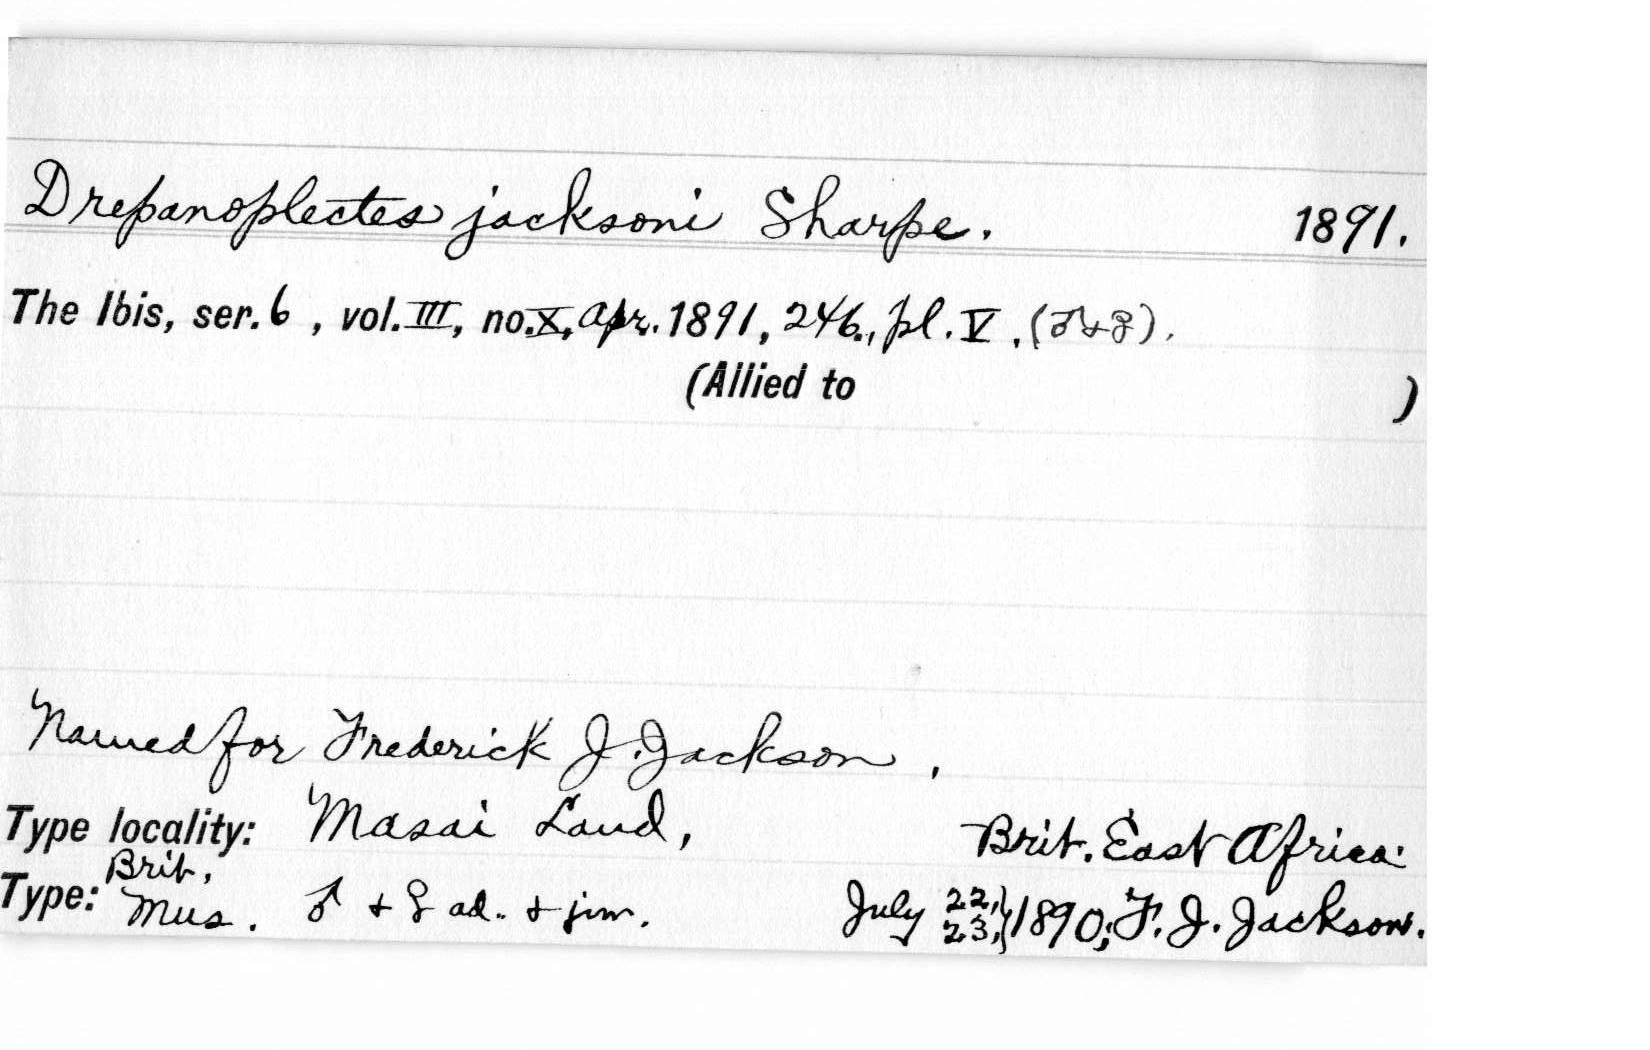 Drepanoplectes jacksoni Sharpe. 1891.
The Ibis, ser. 6, vol. III, no. X, Apr. 1891, 246., pl. V. (♂ + ♀).
(Allied to )
Named for Frederick J. Jackson.
Type locality: Masai Land, Brit. East Africa.
Type: Brit. Mus. ♂ + ♀ ad. + jim. July 22, 23, } 1890; F. J. Jackson.